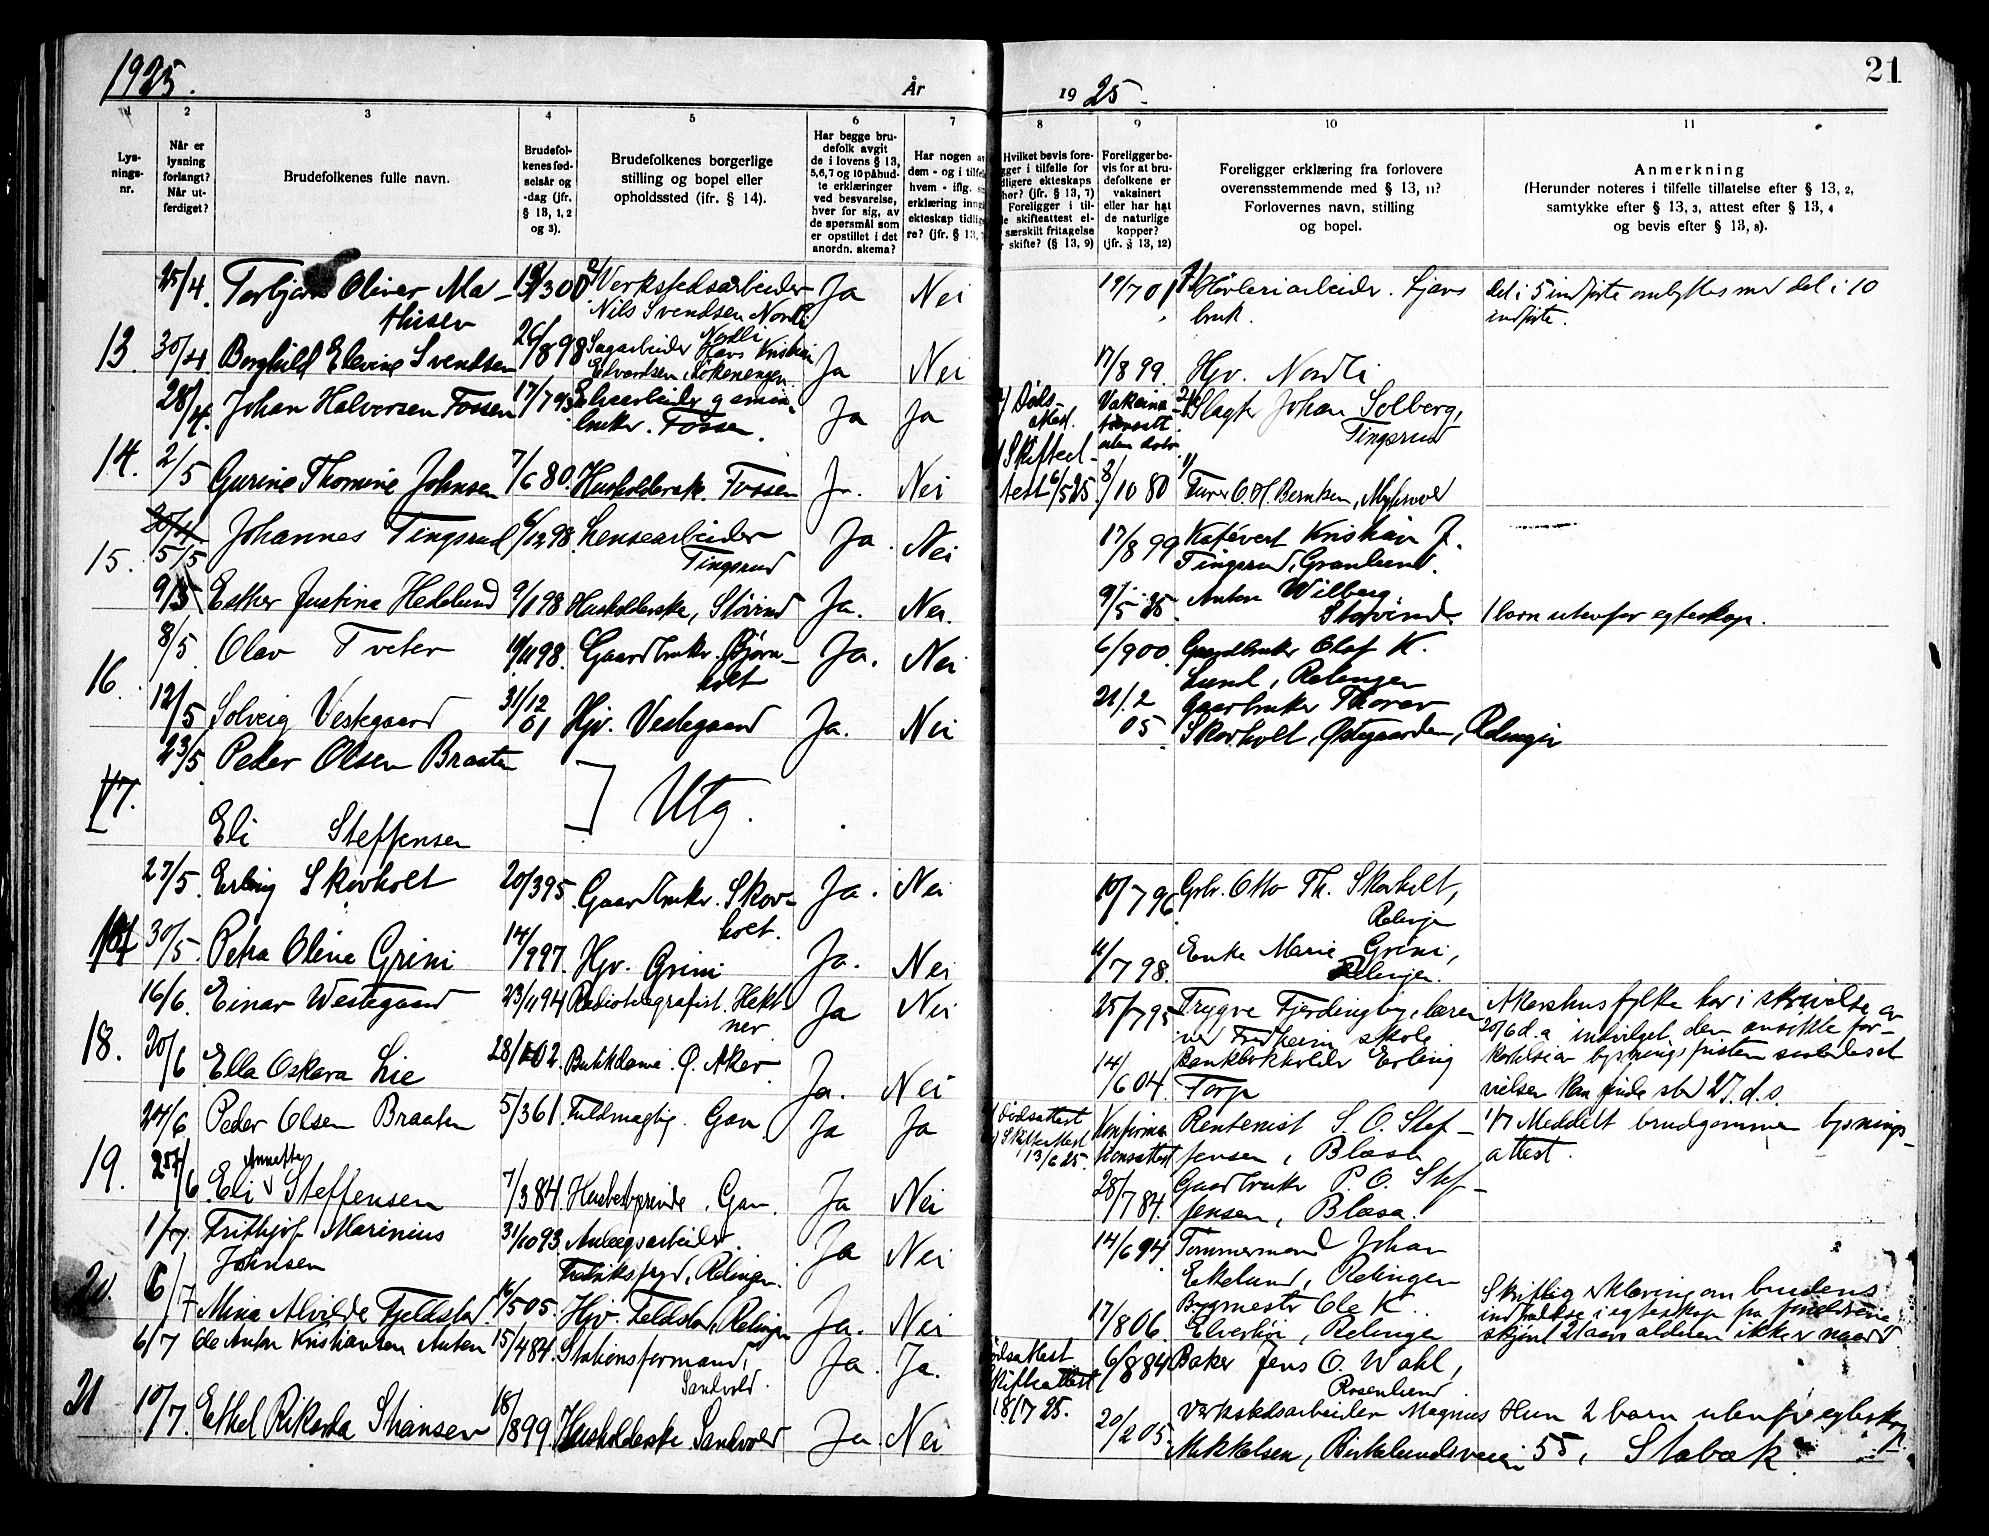 1925.
År
19 25.
21
1
Lys-
nings-
nr.
2
Når er
lysning
forlangt?
Når ut-
ferdiget?
3
Brudefolkenes fulle navn.
4
Brudefol-
kenes fød-
selsår og
-dag (jfr.
§ 13, 1, 2
og 3).
5
Brudefolkenes borgerlige
stilling og bopel eller
opholdssted (jfr. § 14).
6
Har begge bru-
defolk avgit
de i lovens § 13,
5,6,7 og 10 påbud-
te erklæringer
ved besvarelse,
hver for sig, av
de spørsmål som
er opstillet i det
anordn. skema?
7
Har nogen av
dem - og i tilfe
hvem - iflg. s
erklæring inng
ekteskap tidli
re? (jfr. § 13,
8
Hvilket bevis fore-
gger i tilfelle for
dligere ekteskaps
hør? (jfr. § 13, 7)
Foreligger i til-
e skifteattest el-
særskilt fritagelse
skifte? (§ 13, 9)
9
Foreligger be-
vis for at bru-
defolkene er
vaksinert
eller har hat
de naturlige
kopper?
(jfr. § 13, 12)
10
Foreligger erklæring fra forlovere
overensstemmende med § 13, 11?
Forlovernes navn, stilling
og bopel.
11
Anmerkning
(Herunder noteres i tilfelle tillatelse efter § 13, 2,
samtykke efter § 13, 3, attest efter § 13, 4
og bevis efter § 13, 8).
25/4. Torbjørn Oliver Ma-
thisen
Verkstedsarbeider
Nils Svendsen Nordli
Ja Nei
19/7 01 Høvleriarbeider
bruk.
det i 5 indførte ombyttes med det i 10
indførte.
13. 30/4 Borghild Elevine Svendsen 26/8 98 Sagarbeider Hans Kristian
Nordli
Edvardsen, Løkenengen
Ja Nei 17/8 99. Hjv. Nordli
28/4. Johan Halvorsen Fossen 17/7 93
bruker. Fossen.
Ja Ja Døds-
attest. Slagter Johan Solberg,
Tingsrud
14. 2/5 Gurine Thomine Johnsen 7/6 80. Husholderske. Fossen Ja. Nei
Skifteat-
test 6/5 25. 8/10 80
15. 5/5 Johannes Tingsrud 6/12 98. Lensearbeider
Tingsrud
Ja. Nei 17/8 99 Kafévert Kristian J.
Tingsrud, Granlund.
9/5 Esther Justine Hedelund 9/1 98 Husholderske, Støvind Ja. Nei. 9/5 25 Anton Wilberg
Støvind. 1 barn utenfor egteskap.
16. 8/5 Olav Tveter 19/11 98. Gaardbruker. Bjørn-
holt
Ja. Nei 6/9 00. Gaardbruker Olaf K.
Lund, Relingen
12/5 Solveig Vestegaard 31/12
01 Hjv. Vestegaard Ja. Nei
21/2
05 Gaardbruker Thorav
Skovholt, Østegaarden, Relingen
17. 23/5. Peder Olsen Braaten
Eli Steffensen
] Utg.
27/5. Erling Skovholt 20/3 95. Gaardbruker. Skov-
holt.
Ja. Nei 10/7 96. Grbr. Otto Th. Skovholt,
Relingen
30/5. Petra Oline Grini 14/9 97. Hjv. Grini Ja. Nei 11/7 98. Enke Marie Grini,
Relingen.
18. 16/6. Einar Westegaard 23/11 94 Radiotelegrafist. Hekt-
ner
Ja Nei 25/7 95 Trygve Fjerdingby, lærer
ved Fredheim skole
Akershus fylke har i skrivelse av
20/6 d.a. indvilget den ansøkte for-
kortelse av lysningsfristen saaledes at
vielsen kan finde sted 27. d. s.
20/6 Ella Oskara Lie 28/10 02. Butikdame. Ø. Aker. Ja. Nei
14/6 04. Bankbokholder Erling
Torp
19. 24/6 Peder Olsen Braaten 5/3 61. Fuldmægtig. Gan Ja Ja
Dødsattest
Skifteattest
13/6 25. Konfirma
tionsattest Rentenist S. O. Stef-
fensen, Blæsa
1/7 Meddelt brudgommen lysnings-
attest.
25/6 Eli Annette Steffensen 7/3 84. Husbestyrerinde. Gan. Ja Nei
28/7 84. Gaardbruker P. O. Stef-
fensen, Blæsa.
20. 1/7. Frithjof Marinius
Johnsen
31/10 93. Anlægsarbeider.
Fredriksfryd, Relingen.
Ja Nei 14/6 94 Tømmermand Johan
Ekelund, Relingen
6/7 Mina Alvilde Fjeldstad. 16/5 05. Hjv. Feldstad, Relingen Ja. Nei
17/8 06. Bygmester Ole K.
Elverhøi, Relingen
Skriftlig erklæring om brudens
indtrædelse i egteskap fra forældrene
skjønt 21 aars alderen ikke er naadd
21 6/7 Ole Anton Kristiansen Auten 15/4 84. Stationsformand,
Sandvold.
Ja. Ja. Dødsattest
Skifteattest
18/7 25. 6/8 84 Baker Jens O. Wahl,
Rosenlund
10/7. Ethel Rikarda Shansen 18/8 99. Husholderske Sandvold Ja Nei
20/2 05. Verkstedsarbeider Magnus
Mikkelsen, Birkelundsveien 55, Stabæk.
Hun 2 barn utenfor egteskap.